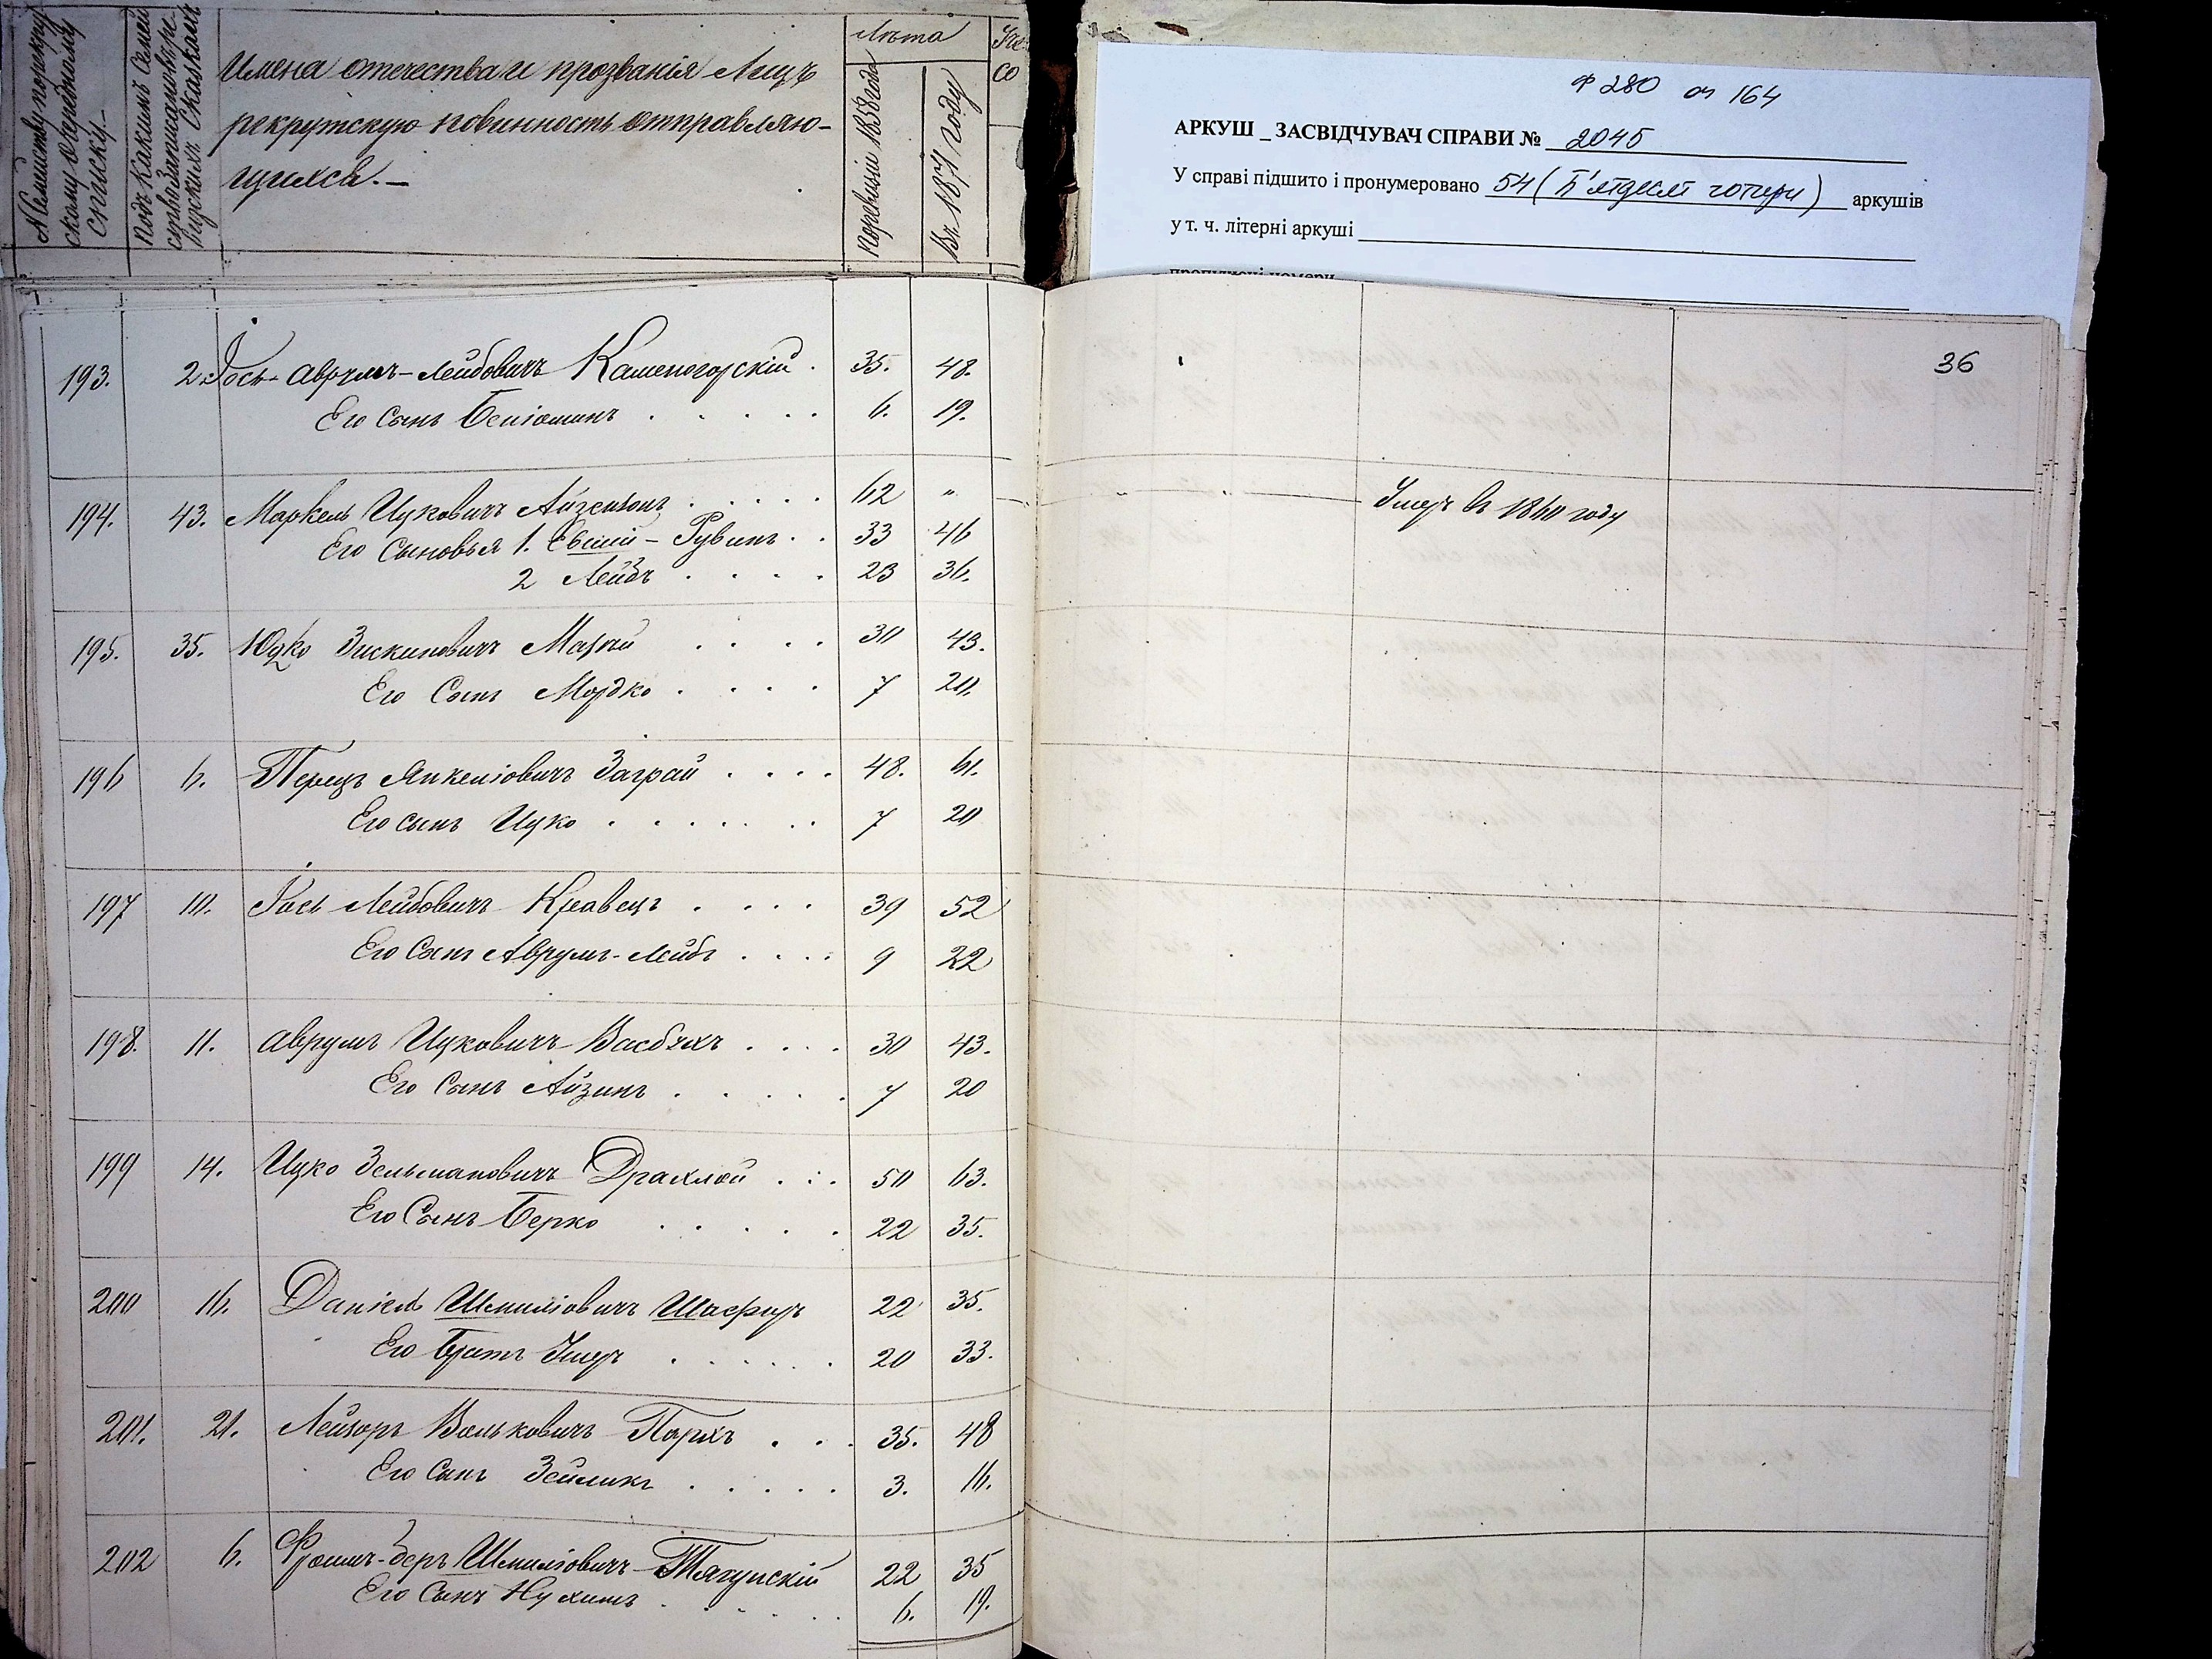 № Семейству по рекрут
скому очередному
списку.—
Подъ какимъ Семей
Лѣта
Имена отечества и прозванія Лицъ
рекрутскую повинность отправляю-
щихся.—
По ревизіи 1858 года
Въ 1871 году
Ф 280 оп 164
АРКУШ _ ЗАСВІДЧУВАЧ СПРАВИ № 2045
У справі підшито і пронумеровано 54 (П'ятдесят чотири) аркушів
у т. ч. літерні аркуші
пропущені номери
36
193. 2. Іось-Аврумъ-Лейбовичъ Каменогорскій . 35. 48.
Его Сынъ Беніоминъ . . . . . 6. 19.
194. 43. Маркель Ицковичъ Айзенсонъ . . . . . 62 „ Умеръ въ 1860 году
Его Сыновья 1. Евшій-Рувинъ . . 33 46
2 Лейбъ . . . . 23 36.
195. 35. Юдко Зискиновичъ Малый . . . . 30 43.
Его Сынъ Мордко . . . . 7 20.
196 6. Перецъ Янкеліовичъ Заграй . . . . 48. 61.
Его сынъ Ицко . . . . . . 7 20
197 10. Іось Лейбовичъ Кравецъ . . . . 39 52
Его Сынъ Аврумъ-Лейбъ . . . . 9 22
198. 11. Аврумъ Ицковичъ Васбухъ . . . . 30 43.
Его Сынъ Айзинъ . . . . . 7 20
199 14. Ицко Зельмановичъ Драхлой . . . 50 63.
Его Сынъ Берко . . . . . 22 35.
200 16. Даніель Шмиліовичъ Шафиръ 22 35.
Его братъ Умеръ . . . . . . 20 33.
201. 21. Лейзоръ Вольковичъ Порхъ . . . 35. 48
Его Сынъ Зейликъ . . . . . 3. 16.
202 6. Фроимъ-Беръ Шмиліовичъ Тягунскій 22 35
Его Сынъ Нухимъ . . . . . 6. 19.